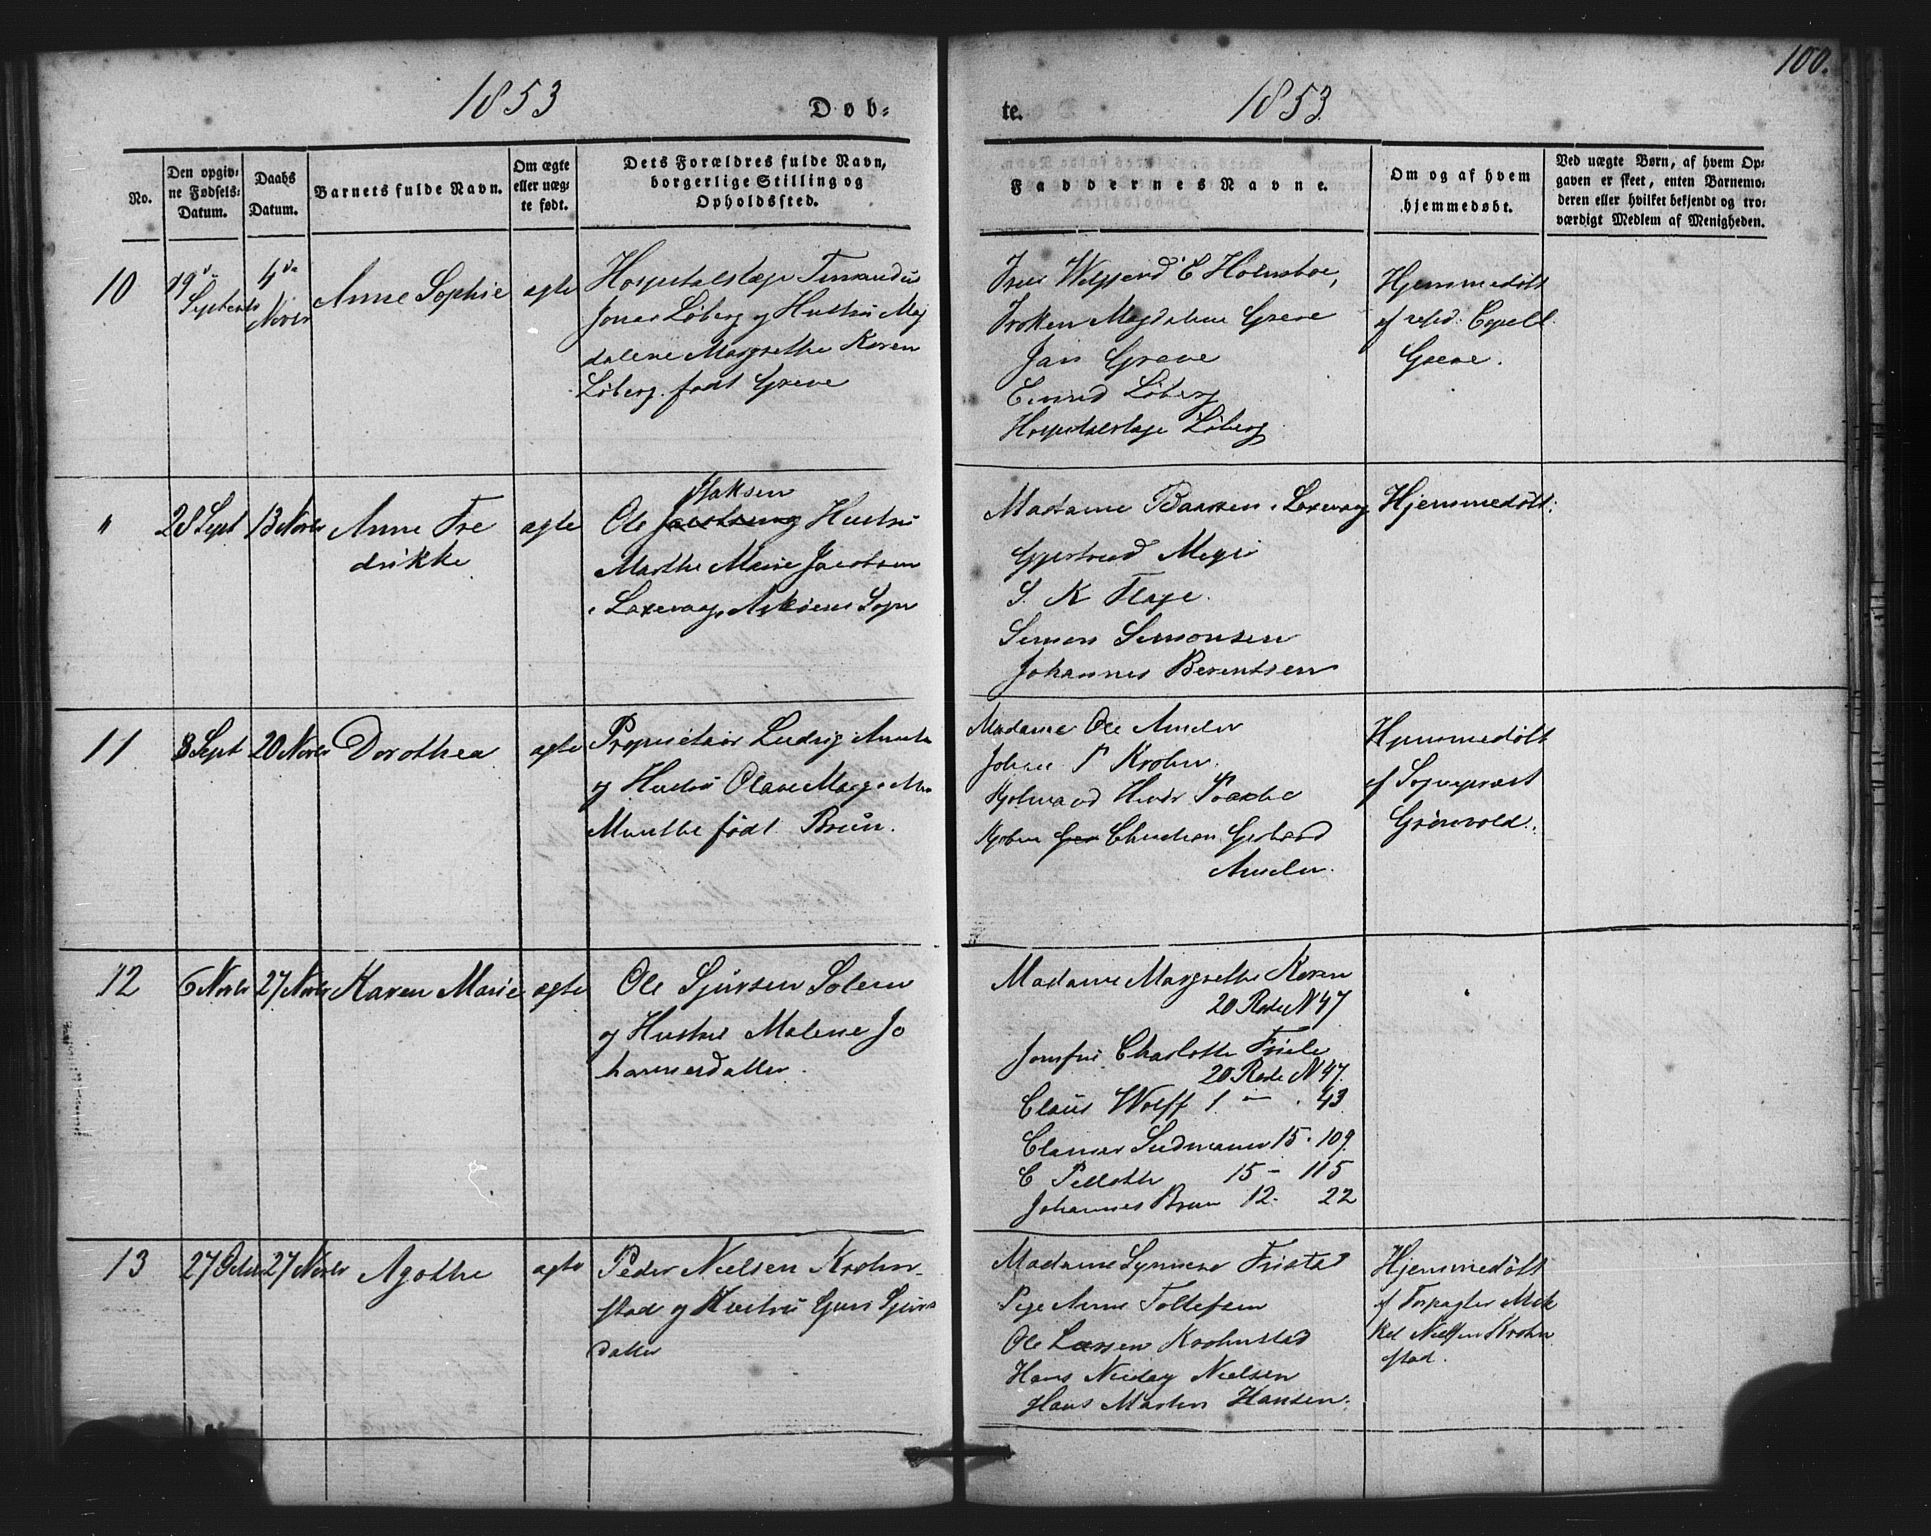 100.
1853 Døb-
te. 1853.
No.
Den opgiv-
ne Fødsels-
Datum.
Daabs
Datum.
Barnets fulde Navn.
Om ægte
eller uæg-
te født.
Dets Forældres fulde Navn,
borgerlige Stilling og
Opholdssted.
Faddernes Navne.
Om og af hvem
hjemmedøbt.
Ved uægte Børn, af hvem Op-
gaven er skeet, enten Barnemo-
deren eller hvilket bekjendt og tro-
værdigt Medlem af Menigheden.
10
Septembr
4de
Novbr
Anne Sophie
ægte
Hospitalslæge
Jonas Løberg og Hustru Mag
dalene Margrethe Karen
Løberg født Greve
E Holmboe,
Frøken Magdalene Greve
Jan Greve
Løberg
Hospitalslæge Løberg
Hjemmedøbt
af resid: Capell
Greve.
"
28 Sept
13 Novbr
Anne Fre
drikke
ægte
Isaksen
Ole Hustru
Marthe Marie Jacobsen
i Laxevaag, Askøens Sogn
Madame i Laxevaag
Meyer
S. K Flage.
Simon Simonsen
Johannes Berentsen
Hjemmedøbt.
11
8 Sept
20 Novbr
Dorothea
ægte
Proprietair Ludvig Munthe
og Hustru Olave
Munthe født Brun.
Madame Ole
P Krohn.
Christian Gerhard
Hjemmedøbt
af Sognepræst
Grönvold.
12
6 Novbr
27 Novbr
Karen Marie
ægte
Ole Sjursen Solem
og Hustru Malene Jo
hannesdatter.
Madame Margrethe Koren
20 Rode N 47
Jomfru Charlotte Friele
20 Rode N 47.
Claus Wolff 1 — . 43
Clamer Sudmann 15 · 109
C Peltoth 15 - 115
Johannes Brun 12. 22
13
27 Octbr
27 Novbr
Agothe
ægte
Peder Nielsen Krohn-
stad og Hustru Guri Sjurs
datter
Madame Fristad
Pige Anne Tollefsen
Ole Larsen Krohnstad
Hans Nielsen
Hans Martin Hansen.
Hjemmedøbt
af Forpagter Mik
kel Nielsen Krohn
stad.